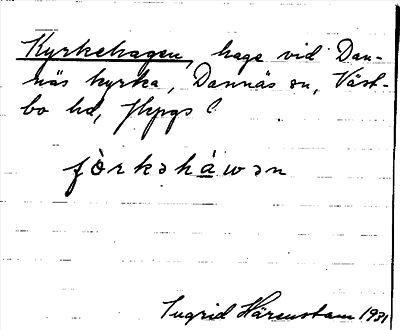 Kyrkehagen, hage vid Dan-
näs kyrka, Dannäs sn, Väst-
bo hd, Jkpgs l
fòrkəháwən
Ingrid Härenstam 1931